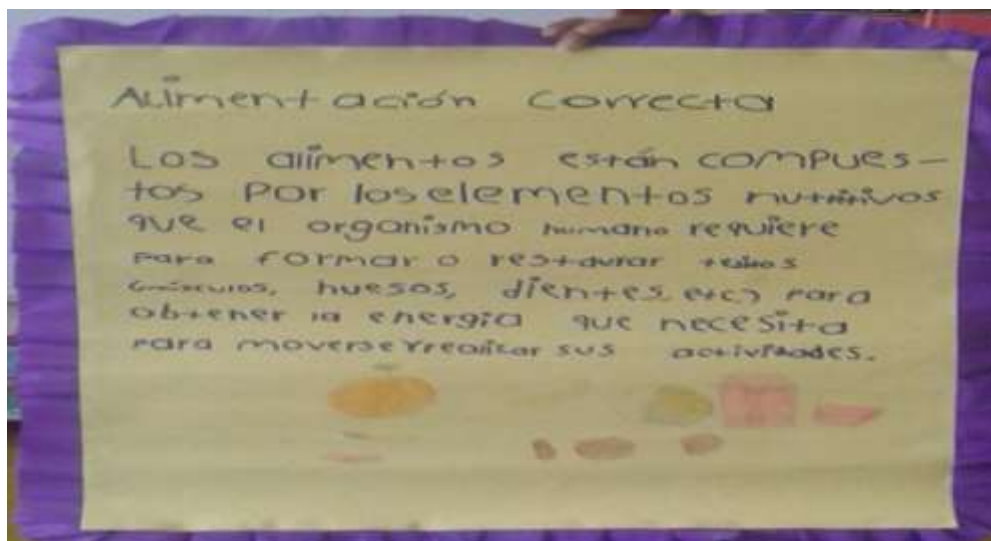 Alimentación correcta
Los alimentos están compues-
tos por los elementos nutritivos
que el organismo humano requiere
para formar o restaurar tejidos
(músculos, huesos, dientes, etc) para
obtener la energía que necesita
para moverse y realizar sus actividades.